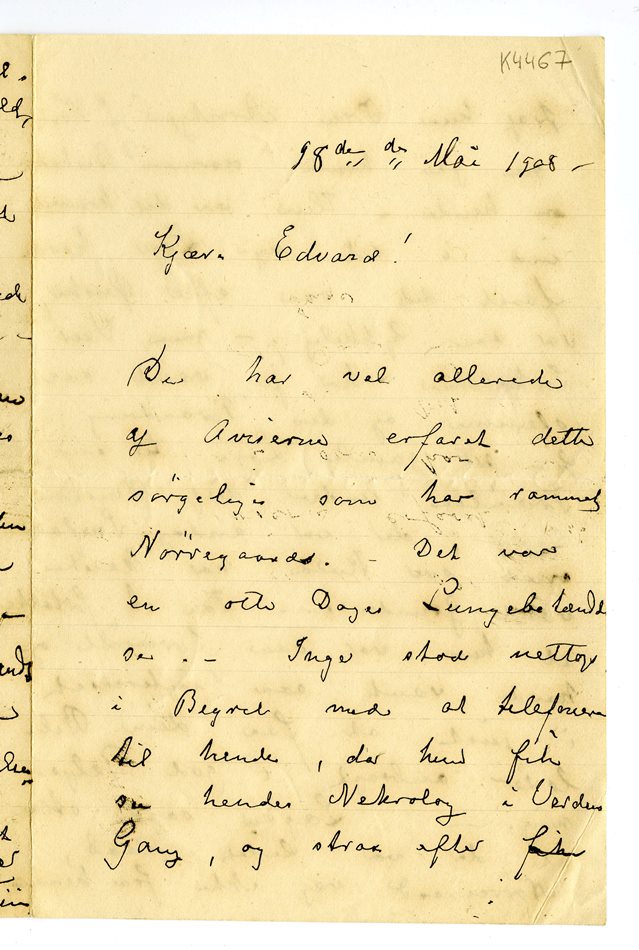 K4467
18de de Mai 1908 –
Kjære Edvard!
De har vel allerede
af Aviserne erfaret dette
sørgelige som har rammet
Nørregaards. – Det var
en otte Dages Lungebetændel
se. – Inge stod nettop
i Begreb med at telefonere
til hende, da hun fik
se hendes Nekrolog i Verdens
Gang, og strax efter